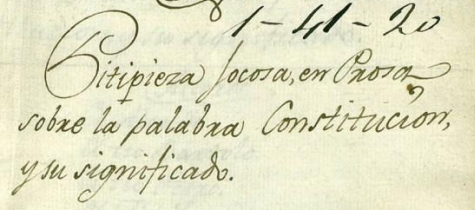 1-41-20
Sitipieza Jocosa, en Prosa
sobre la palabra Constitución,
y su significado.